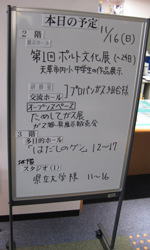 本日の予定
11/16(日)
2階
第1回ボルト文化展(~29日)
天草市内小中学生の作品展示
交流ホール
プロパンガス
オープンスペース
ためしてガス展
3階
多目的ホール
「はだしのゲン」12~17
スタジオ(1)
県立大学隊 11~16